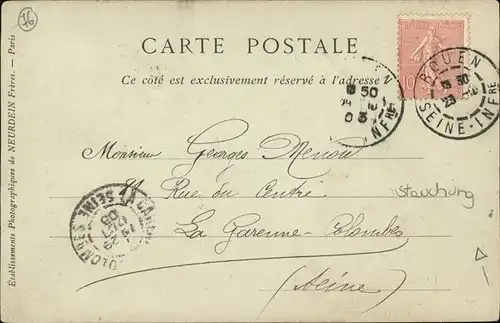 16
CARTE POSTALE
Ce côté est exclusivement réservé à l'adresse
ROUEN
SEINE-INFRE
50
23
EN
50
INFRE
10
Monsieur Georges Menou
21 Rue du Centre
Stauchung
La Garenne-Colombes
(Seine)
LA GARENNE
COLOMBES SEINE
Établissements Photographiques de NEURDEIN Frères. — Paris